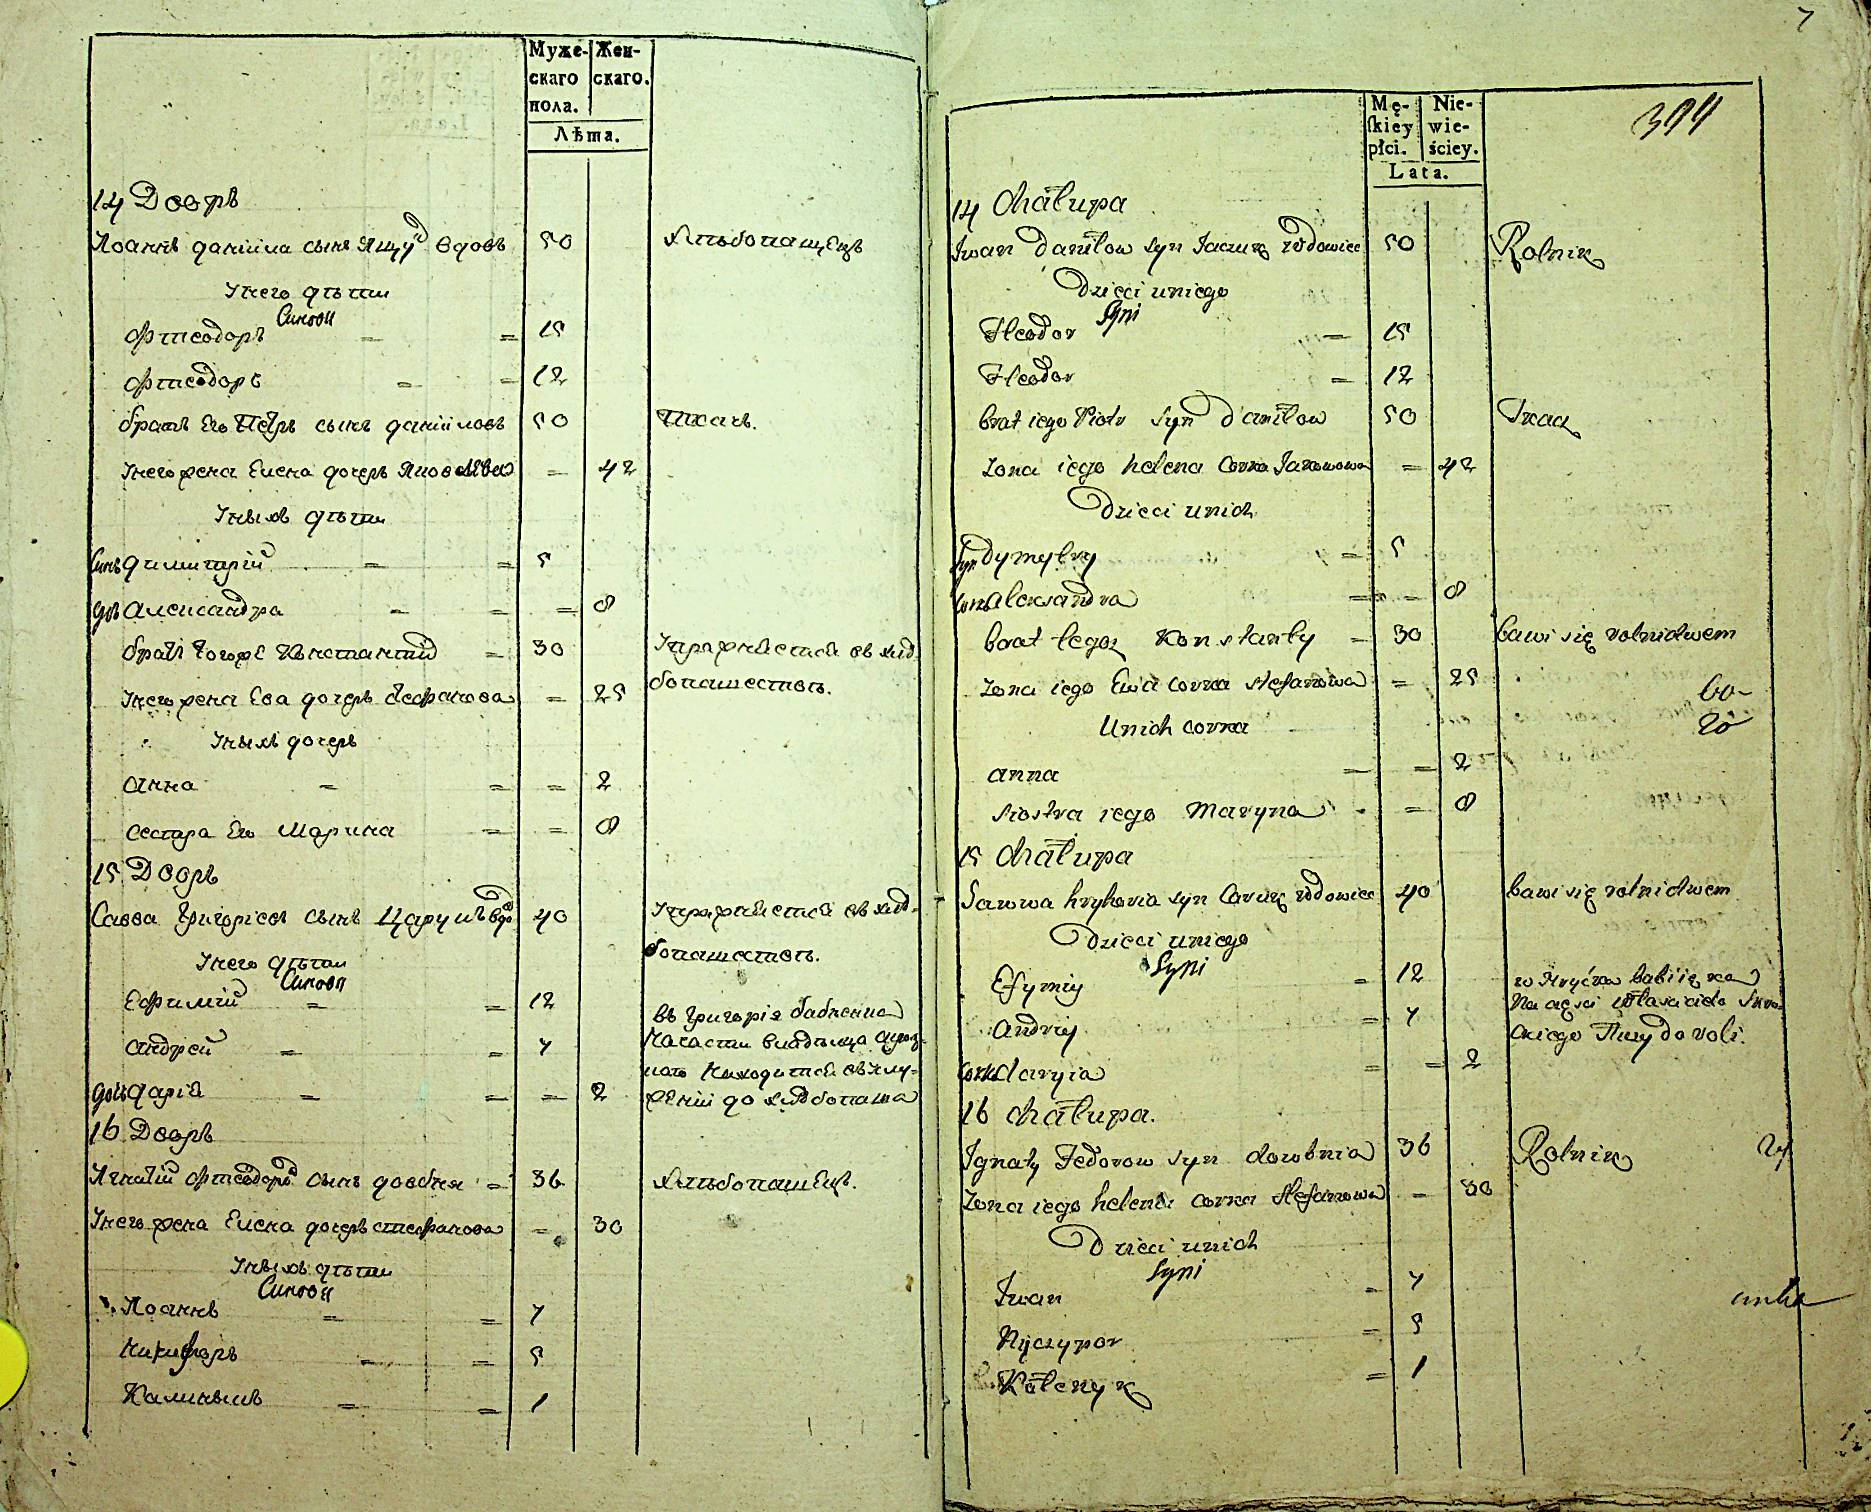 Муже-
скаго
пола.
Жен-
скаго.
Лѣта.
14 Дворъ
Иоаннъ даніила сынъ Яцу вдовъ 50 хлѣбопашецъ
У него дѣти
Синовя
Фтеодоръ = = 15
Фтеодоръ = = 12
братъ его Петръ сынъ даніиловъ 50 Ткачъ.
У него жена Елена дочерь Яковлева = 42
У ныхъ дѣти
Синъ димитрій = = 5
доч александра = = = 8
братъ тогоже Констанътій = 30 Упражняется въ хлѣ-
бопашествомъ.
У него жена Ева дочерь Стефанова = 25
У ныхъ дочерь
анна = = = 2
сестра Его Марина = = 8
15 Дворъ
Савва Григоріевъ сынъ Царукъ вдо 40 Упражняется въ хлѣ-
бопашествомъ.
У него дѣти
Синовя
Ефимій = = 12
въ Григорія бабченка
андрей = = 7
на части владѣлца
находится въ
дочь дарія = = = 2
до хлѣбопаша
16 Дворъ
Игнатій Фтеодоръ сынъ довбня = 36 хлѣбопашецъ.
У него жена Елена дочерь стефанова = 30
У ныхъ дѣти
Синовя
Иоаннъ = = 7
Никифоръ = = 5
Калиныкъ = = 1
7
Mę-
skiey
płci.
Nie-
wie-
ściey.
Lata.
394
14 Chałupa
Iwan Daniłow syn Jacuk wdowiec 50 Rolnik
Dzieci uniego
Syni
Fteodor = 15
Fteodor = 12
brat iego Piotr syn Daniłow 50 Tkacz
Zona iego helena Corka Jakowowa = 42
Dzieci unich
Syn dymytry = 5
Corka aleksandra = = 8
brat tegoz Konstanty = 30 bawi się rolnictwem
Zona iego Ewa corka stefanowa = 25
bo-
20
Unich corka
anna = = 2
siostra iego Maryna = 8
15 Chałupa
Sawwa hryhoria syn Caruk wdowiec 40 bawi się rolnictwem
Dzieci uniego
Syni
Efymiy = 12
Andriy = 7
Corka daryia = = 2
16 Chałupa.
Ignaty Fedorow syn dowbnia 36 Rolnik
Zona iego helena corka stefanowa = 30
Dzieci unich
Syni
Iwan = 7
Nyczypor = 5
Kałenyk = 1